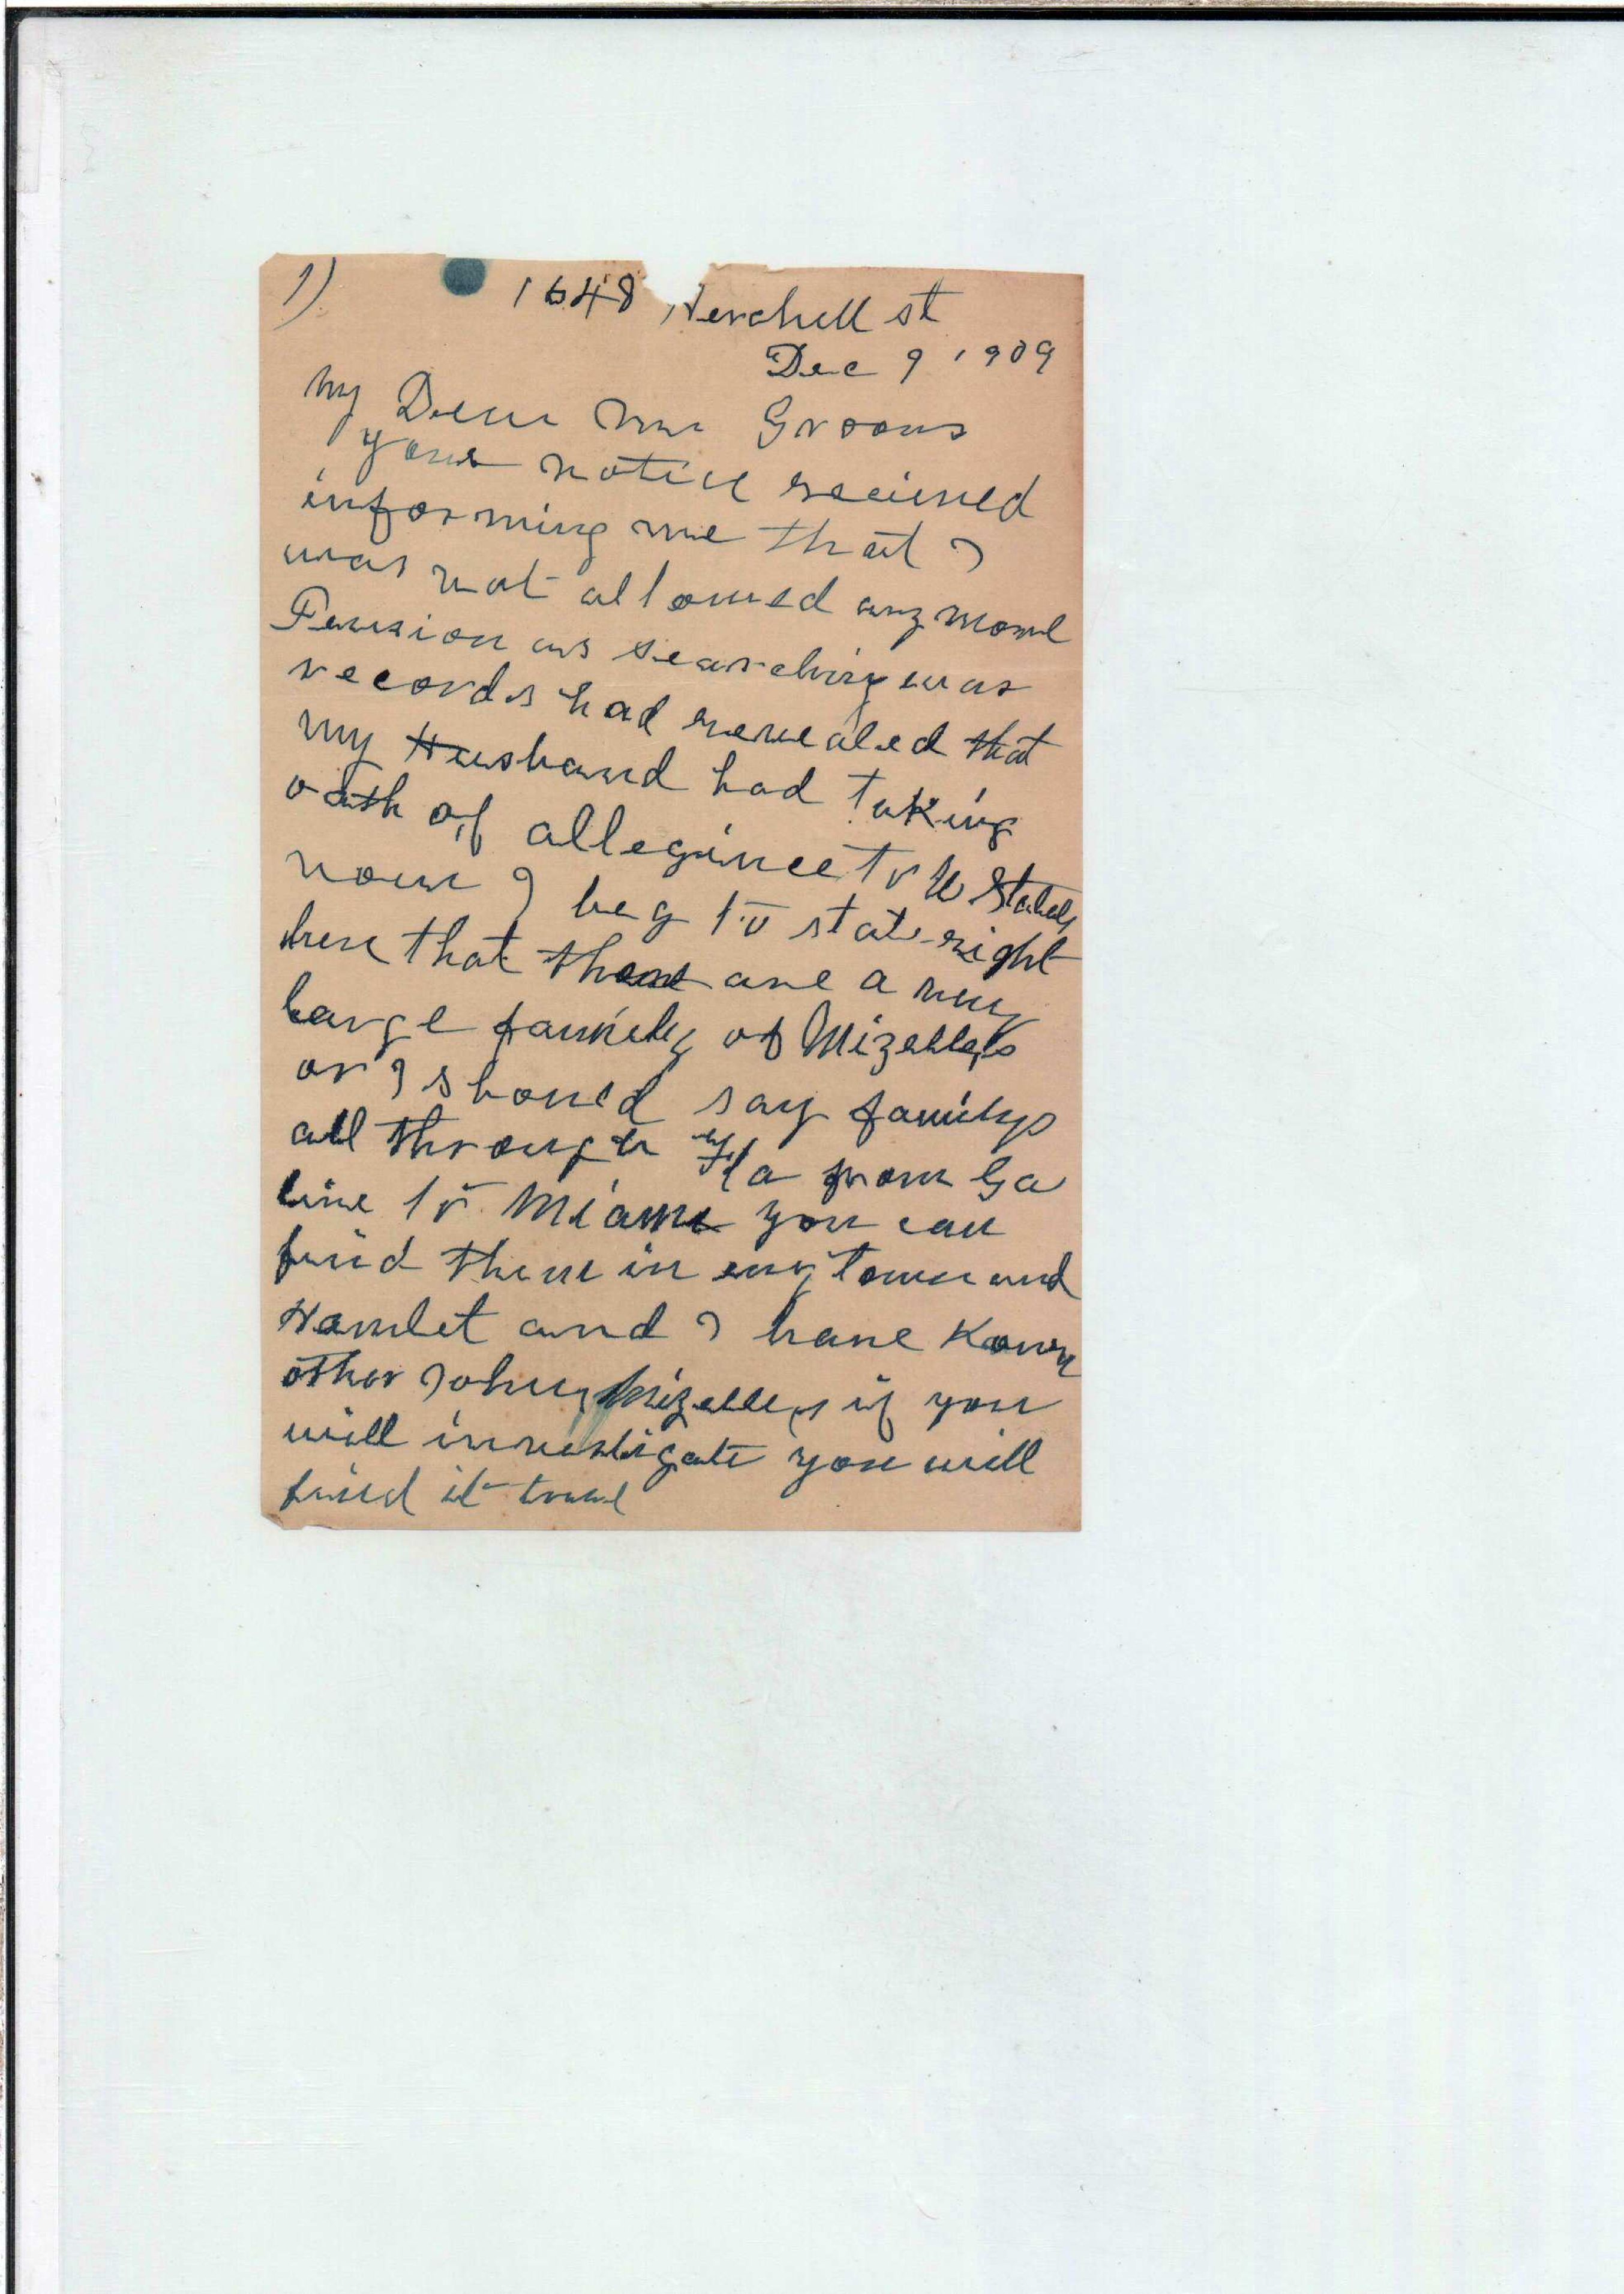 1)
1648 Herchell st
Dec 9 1909
My Dear Mr Grooms
your notice recieved
informing me that I
was not allowed any more
Pension as searching war
records had revealed that
my Husband had taking
oath of allegince to U States
now I beg to state right
here that there are a very
large family of Mizelles
or I should say familys
all through Fla from Ga
line to Miami you can
find them in evry town and
Hamlet and I have Kown
other Johny Mizelles if you
will investigate you will
find it true